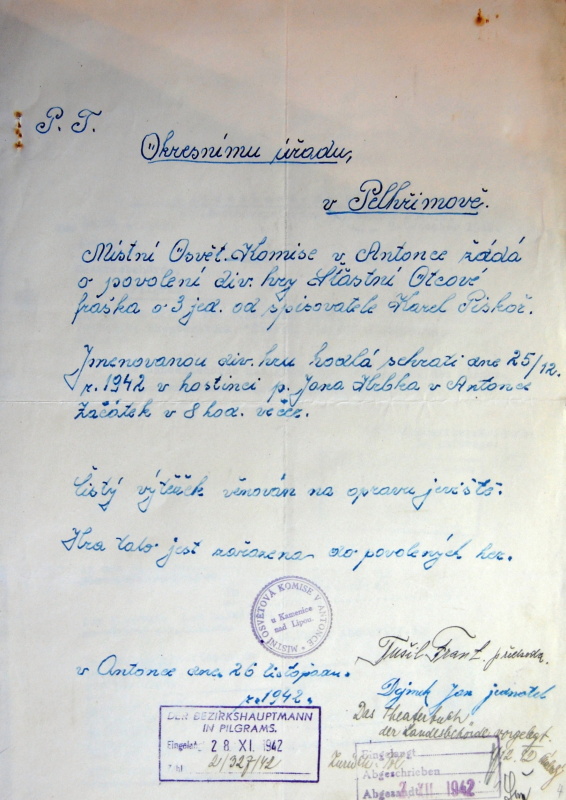 P. T.
Okresnímu úřadu,
v Pelhřimově.
Místní Osvět. Komise v Antonce žádá
o povolení div. hry Šťastní Otcové
fraška o 3 jed. od spisovatele Karel Piskoř.
Jmenovanou div. hru hodlá sehrati dne 25/12.
r. 1942 v hostinci p. Jana Hrbka v Antonce
začátek v 8 hod. večer.
Čistý výtěžek věnován na opravu jeviště.
Hra tato jest zařazena do povolených her.
MÍSTNÍ OSVĚTOVÁ KOMISE V ANTONCE
u Kamenice
nad Lipou.
Tušil Frant. předseda.
v Antonce dne 26 listopadu.
r. 1942.
Dejmek Jan jednatel
Das Theaterbuch
der Landesbehörde vorgelegt.
DER BEZIRKSHAUPTMANN
IN PILGRAMS.
Eingelangt 28 XI. 1942
Zahl 21/327/42
Eingelangt
Abgeschrieben
Abgesandt XII 1942